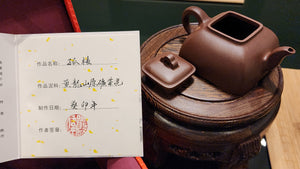 作品名称：孤棱
作品泥料：黄龙山原矿紫泥
制作日期：癸卯年
作者签章：